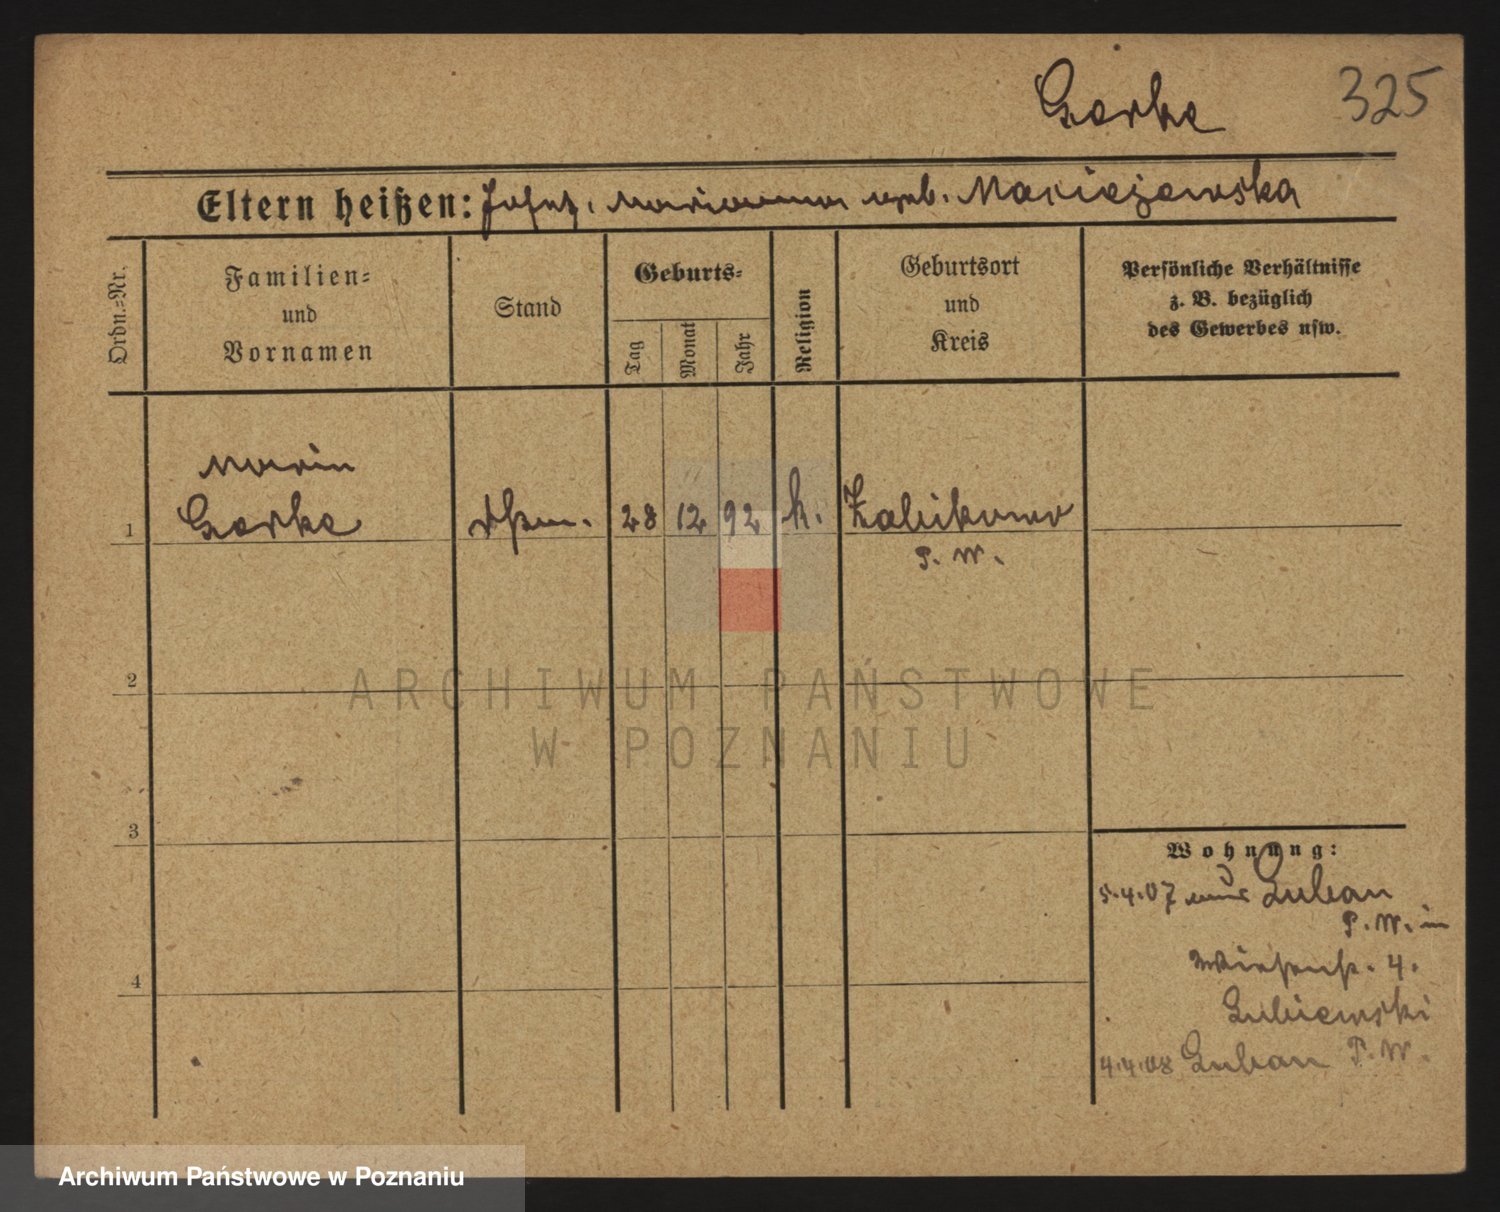 Gorke 325
Eltern heißen: Josef, Marianna geb. Maciejewska
Ordn.-Nr.
Familien-
und
Vornamen
Stand
Geburts-
Tag
Monat
Jahr
Religion
Geburtsort
und
Kreis
Persönliche Verhältnisse
z. B. bezüglich
des Gewerbes usw.
Marie
1 Gorke 28 12 92 k. Zabikowo
P. W.
2
3
4
Wohnung:
5.4.07 aus Luban
P. W. in
Wiesenstr. 4.
Lubiewski
4.4.08 Luban P. W.
ARCHIWUM PAŃSTWOWE
W POZNANIU
Archiwum Państwowe w Poznaniu